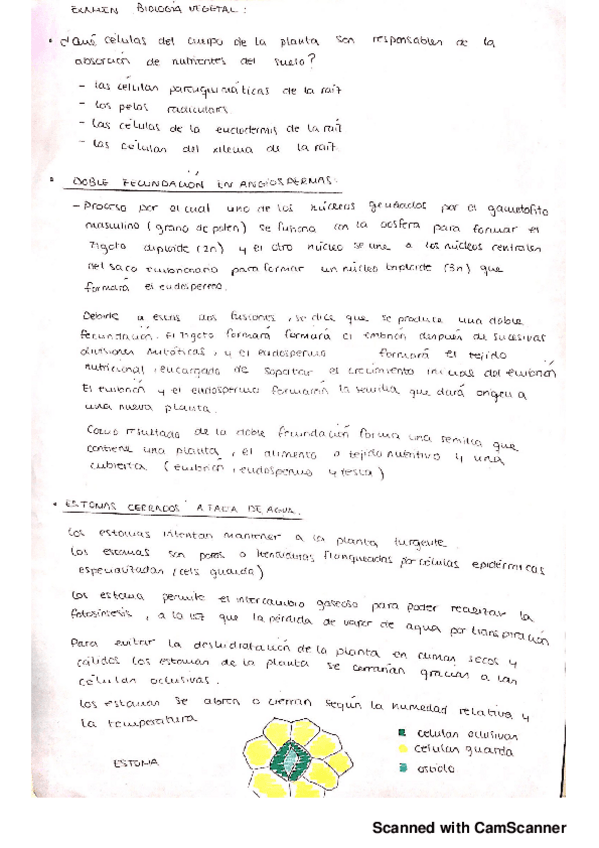 EXAMEN BIOLOGÍA VEGETAL:
• ¿Qué células del cuerpo de la planta son responsables de la
absorción de nutrientes del suelo?
- las células parenquimáticas de la raíz
- los pelos radiculares
- las células de la endodermis de la raíz
- las células del xilema de la raíz
• DOBLE FECUNDACIÓN EN ANGIOSPERMAS:
- Proceso por el cual uno de los núcleos generados por el gametofito
masculino (grano de polen) se fusiona con la oosfera para formar el
zigoto diploide (2n) y el otro núcleo se une a los núcleos centrales
del saco embrionario para formar un núcleo triploide (3n) que
formará el endospermo.
Debido a estas dos fusiones, se dice que se produce una doble
fecundación. El zigoto formará formará el embrión después de sucesivas
divisiones mitóticas, y el endospermo formará el tejido
nutricional, encargado de soportar el crecimiento inicial del embrión
El embrión y el endospermo formarán la semilla que dará origen a
una nueva planta.
Como resultado de la doble fecundación forma una semilla que
contiene una planta, el alimento o tejido nutritivo y una
cubierta (embrión, endospermo y testa)
• ESTOMAS CERRADOS A FALTA DE AGUA.
Los estomas intentan mantener a la planta turgente.
Los estomas son poros o hendiduras flanqueadas por células epidérmicas
especializadas (cels guarda)
Los estoma permite el intercambio gaseoso para poder realizar la
fotosíntesis, a la vez que la pérdida de vapor de agua por transpiración
Para evitar la deshidratación de la planta en climas secos y
cálidos los estomas de la planta se cerrarían gracias a las
células oclusivas.
Los estomas se abren o cierran según la humedad relativa y
la temperatura
células oclusivas
células guarda
ostiolo
ESTOMA
Scanned with CamScanner